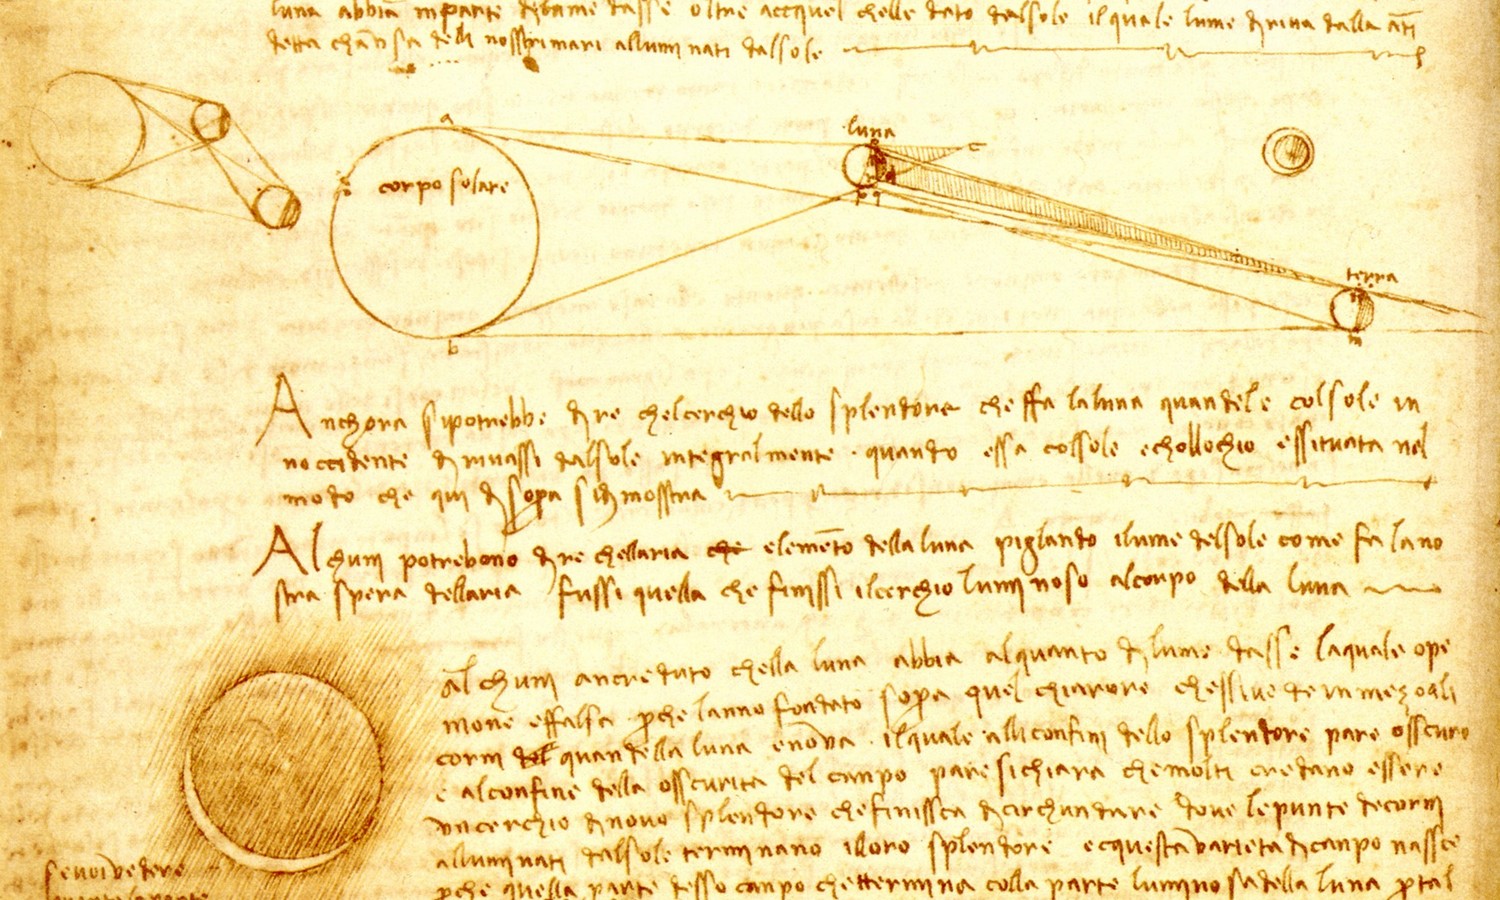 luna abbia inparte dilume dasse oltre accquel chelle dato dalsole ilquale lume diriva dalla
detta chansa delli nosstri mari alluminati dalsole
a
luna
c
corpo solare
terra
b
m
Anchora sipotrebbe dire chelcerchio dello splendore cheffa laluna quandele colsole in
noccidente dirivassi dalsole integralmente · quando essa cossole echollochio essituata nel
modo che qui disopra sidimosstra
Alchuni potrebono dire chellaria che elemēto dellaluna pigliando ilume delsole come fa lano
stra spera dellaria fussi quella che finissi ilcerchio luminoso alcorpo della luna
alchuni an creduto chella luna abbia alquanto dilume dasse laquale ope
nione effalsa p̱che lanno fondato sopra quel chiarore chessivede inmezo alli
corni quandella luna enova · ilquale alli confini dello splendore pare osscuro
e alconfine della osscurita del canpo pare sichiara chemolti credano essere
un cerchio dinovo splendore chefinissca dicirchundare dove lepunte decorni
alluminati dalsole terminano illoro splendore ecquesta varieta dicanpo nassce
p̱che quella parte desso canpo chettermina colla parte luminosa della luna p̱ tal
sevoi vedere